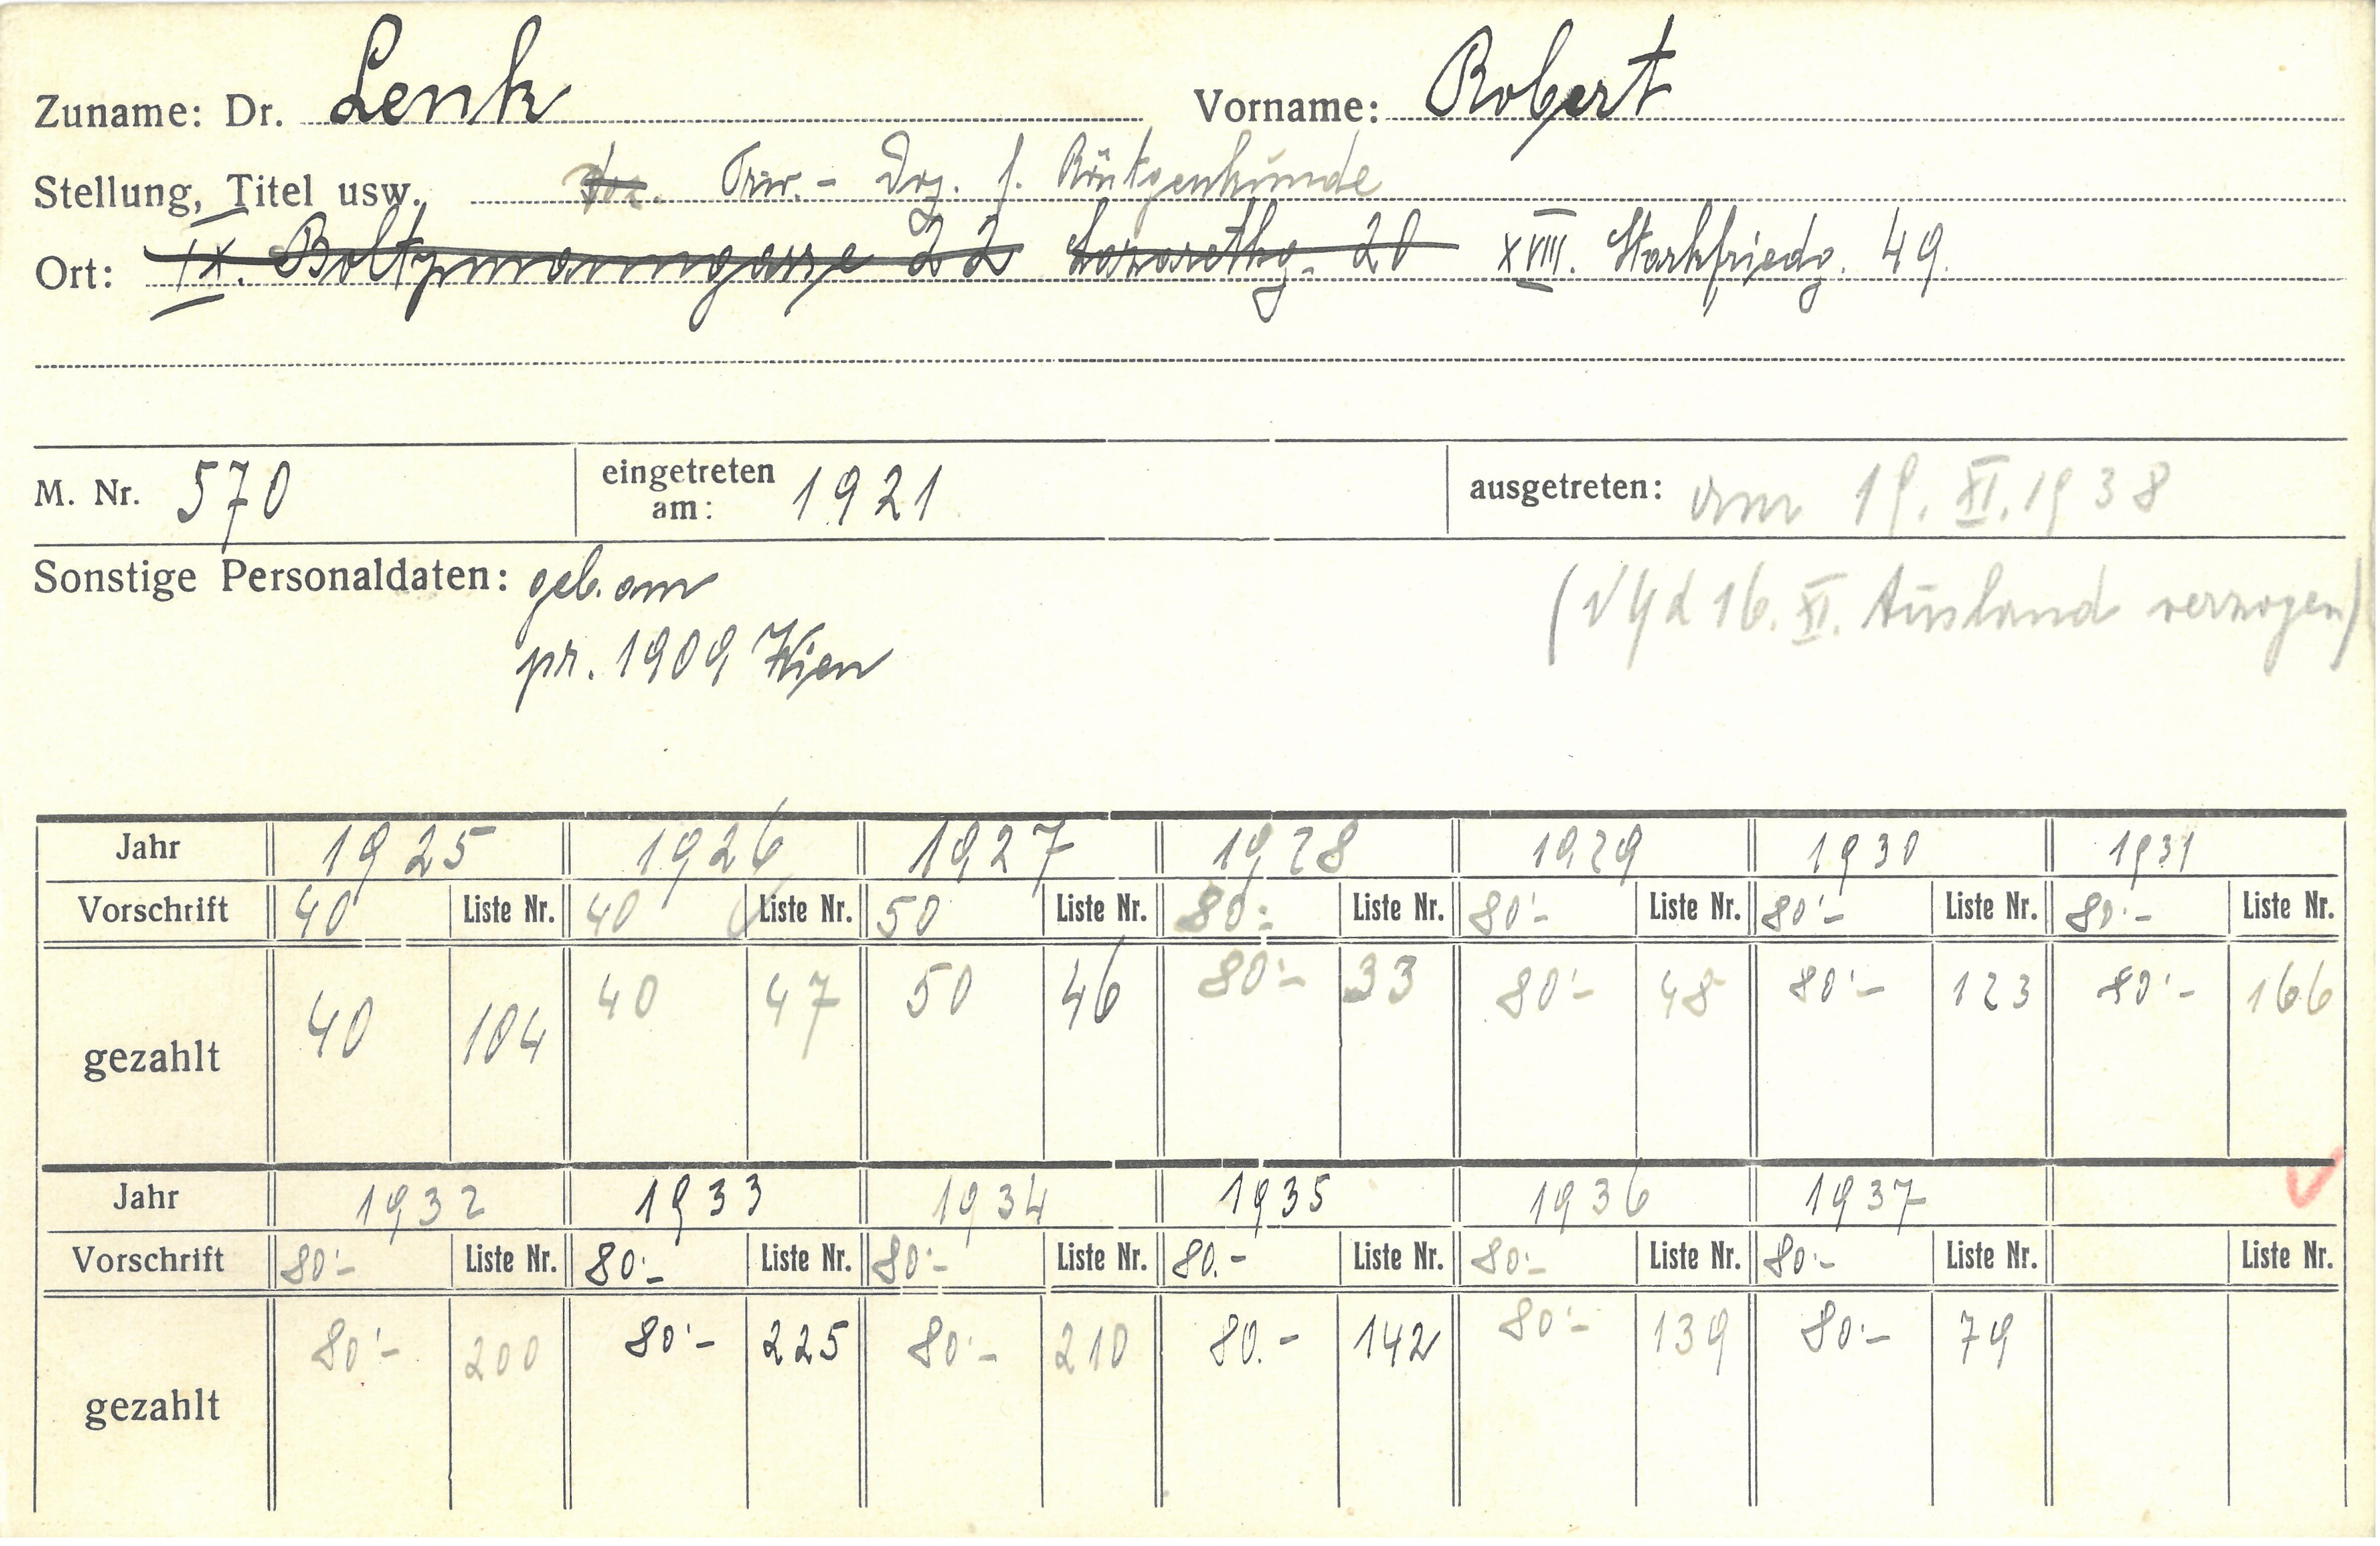 Zuname: Dr. Lenk Vorname: Robert
Stellung, Titel usw. Priv.- Doz. f. Röntgenkunde
Ort: IX. Boltzmanngasse 22 Lazarethg. 20 XVIII. Starkfriedg. 49.
M. Nr. 570 eingetreten am: 1921 ausgetreten: am 19. XI. 1938
Sonstige Personaldaten: geb. am
(16. XI. Ausland verzogen)
pr. 1909 Wien
Jahr 1925 1926 1927 1928 1929 1930 1931
Vorschrift 40 Liste Nr. 40 Liste Nr. 50 Liste Nr. 80.- Liste Nr. 80.- Liste Nr. 80.- Liste Nr. 80.- Liste Nr.
gezahlt 40 104 40 47 50 46 80.- 33 80.- 48 80.- 123 80.- 166
Jahr 1932 1933 1934 1935 1936 1937
Vorschrift 80.- Liste Nr. 80.- Liste Nr. 80.- Liste Nr. 80.- Liste Nr. 80.- Liste Nr. 80.- Liste Nr. Liste Nr.
gezahlt 80.- 200 80.- 225 80.- 210 80.- 142 80.- 139 80.- 79